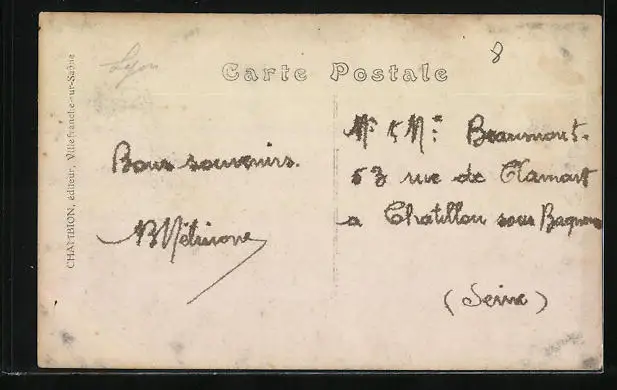 Lyon
8
Carte Postale
CHAMBION, éditeur, Villefranche-sur-Saône
Bons souvenirs.
Mr & Me Beaumont.
53 rue de Clamart
a Chatillon sous Bagneux
(Seine)